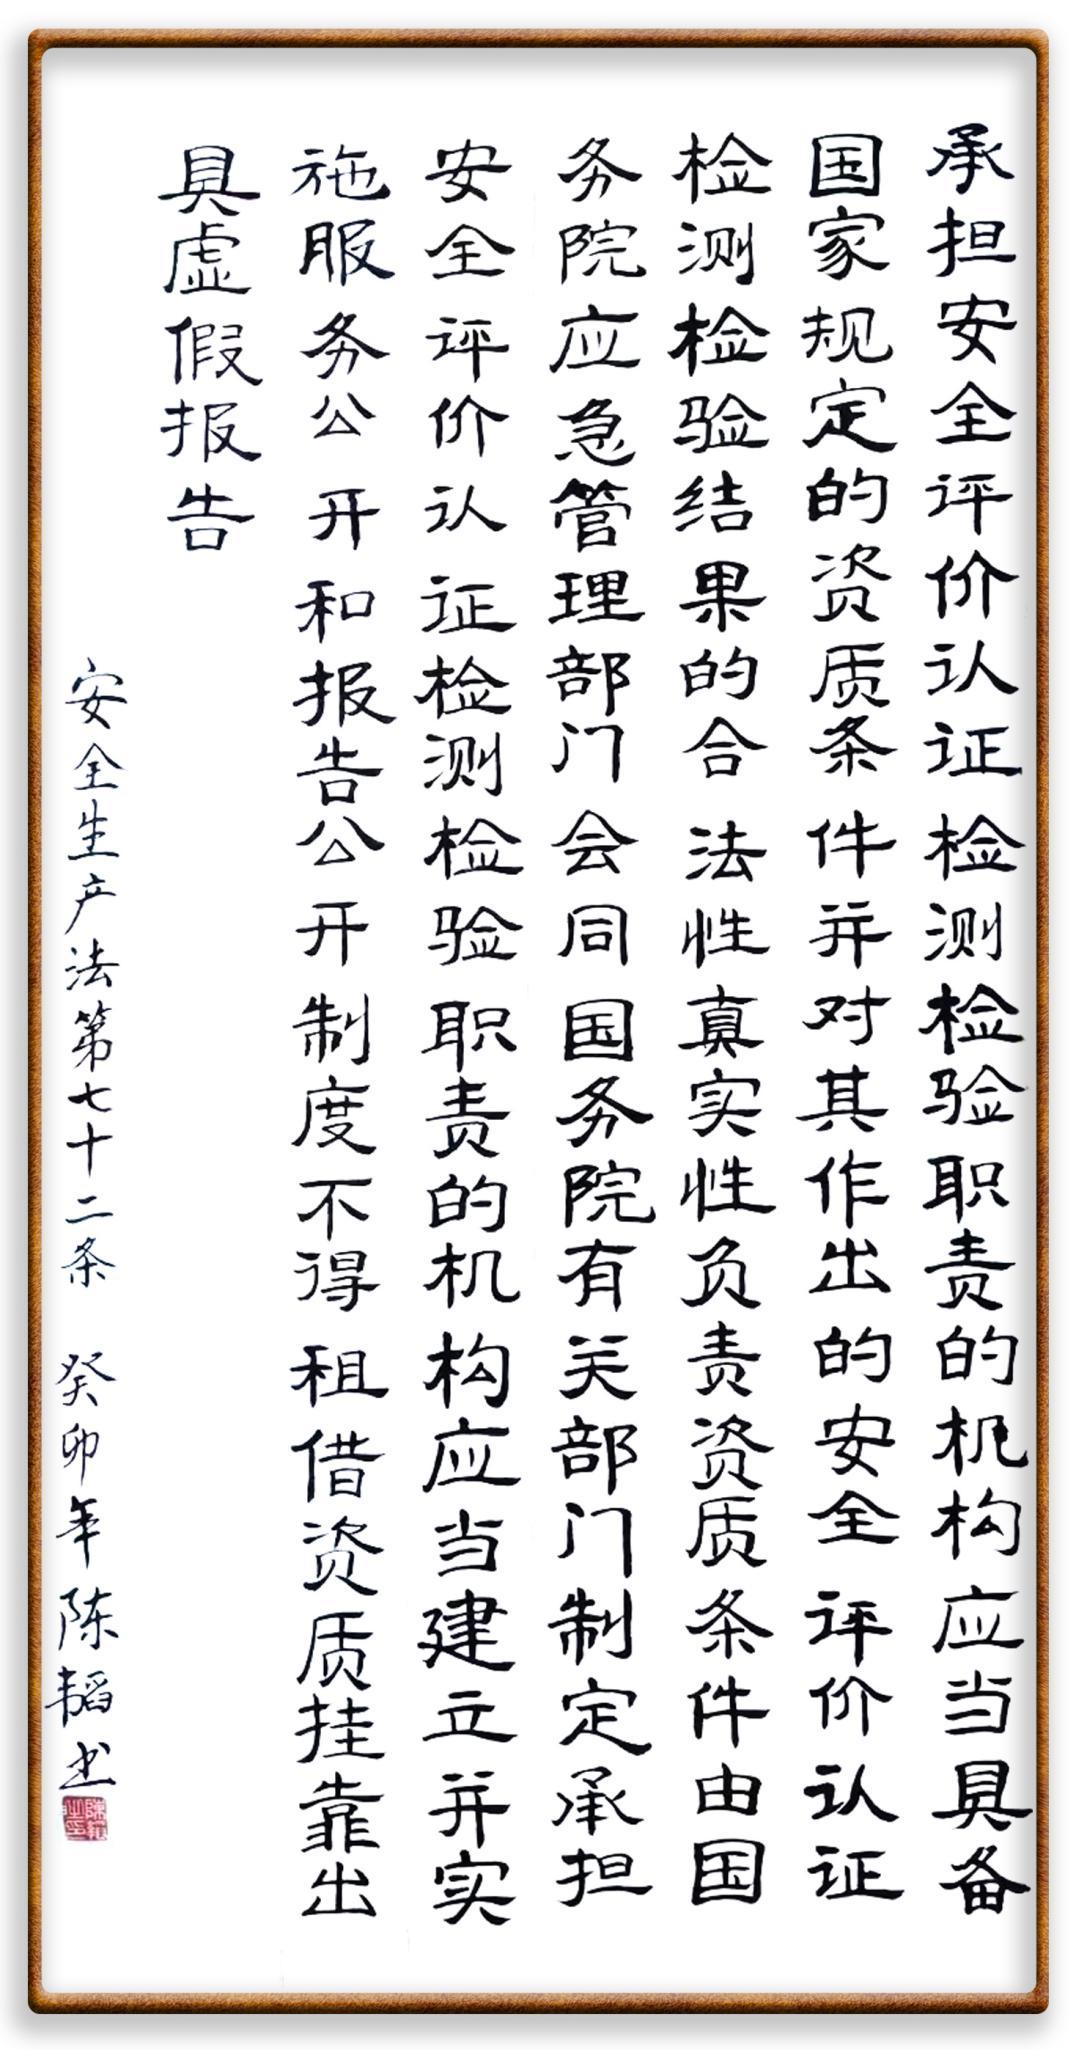 承担安全评价认证检测检验职责的机构应当具备
国家规定的资质条件并对其作出的安全评价认证
检测检验结果的合法性真实性负责资质条件由国
务院应急管理部门会同国务院有关部门制定承担
安全评价认证检测检验职责的机构应当建立并实
施服务公开和报告公开制度不得租借资质挂靠出
具虚假报告
安全生产法第七十二条 癸卯年陈韬书